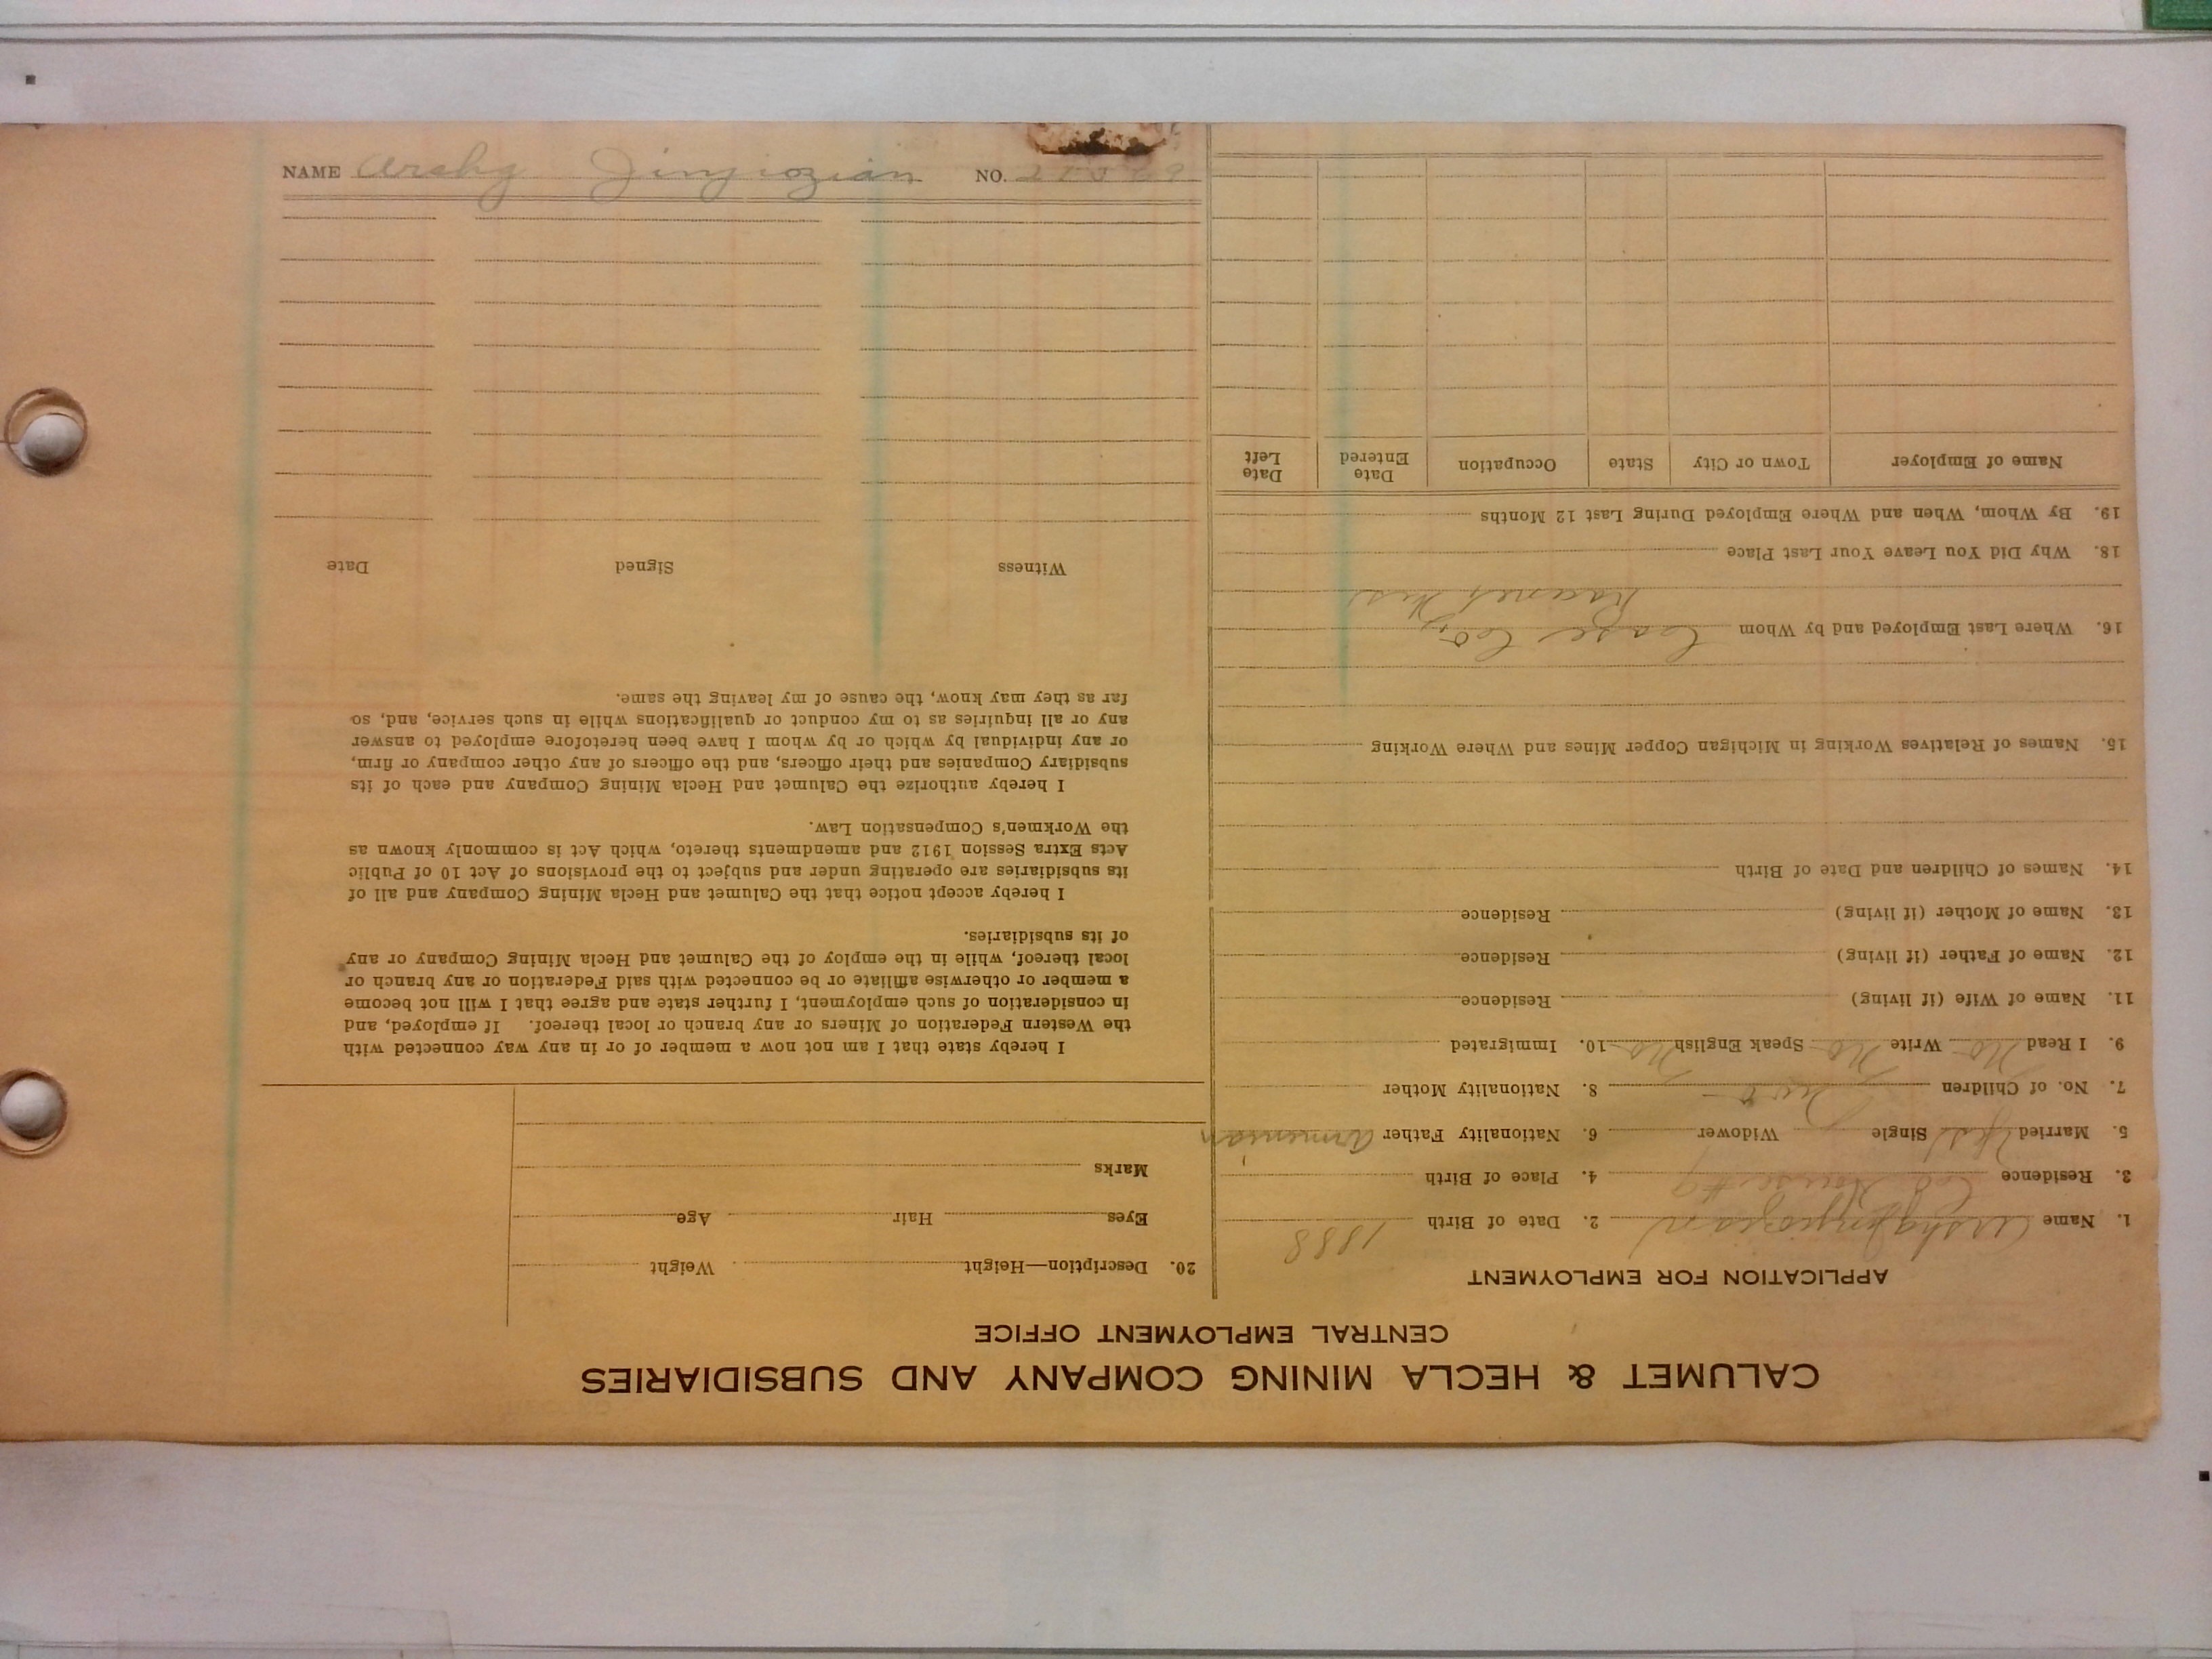 CALUMET & HECLA MINING COMPANY AND SUBSIDIARIES
CENTRAL EMPLOYMENT OFFICE
APPLICATION FOR EMPLOYMENT
1. Name Arshg Jinjiozian 2. Date of Birth 1888
3. Residence Co House #9 4. Place of Birth
5. Married Yes Single Widower 6. Nationality Father Armenian
7. No. of Children Two 8. Nationality Mother
9. I Read No Write No Speak English No 10. Immigrated
11. Name of Wife (if living) Residence
12. Name of Father (if living) Residence
13. Name of Mother (if living) Residence
14. Names of Children and Date of Birth
15. Names of Relatives Working in Michigan Copper Mines and Where Working
16. Where Last Employed and by Whom Case Co
18. Why Did You Leave Your Last Place
19. By Whom, When and Where Employed During Last 12 Months
Name of Employer Town or City State Occupation Date Entered Date Left
20. Description—Height Weight
Eyes Hair Age
Marks
I hereby state that I am not now a member of or in any way connected with
the Western Federation of Miners or any branch or local thereof. If employed, and
in consideration of such employment, I further state and agree that I will not become
a member or otherwise affiliate or be connected with said Federation or any branch or
local thereof, while in the employ of the Calumet and Hecla Mining Company or any
of its subsidiaries.
I hereby accept notice that the Calumet and Hecla Mining Company and all of
its subsidiaries are operating under and subject to the provisions of Act 10 of Public
Acts Extra Session 1912 and amendments thereto, which Act is commonly known as
the Workmen's Compensation Law.
I hereby authorize the Calumet and Hecla Mining Company and each of its
subsidiary Companies and their officers, and the officers of any other company or firm,
or any individual by which or by whom I have been heretofore employed to answer
any or all inquiries as to my conduct or qualifications while in such service, and, so
far as they may know, the cause of my leaving the same.
Witness Signed Date
NAME Arshg Jinjiozian NO.